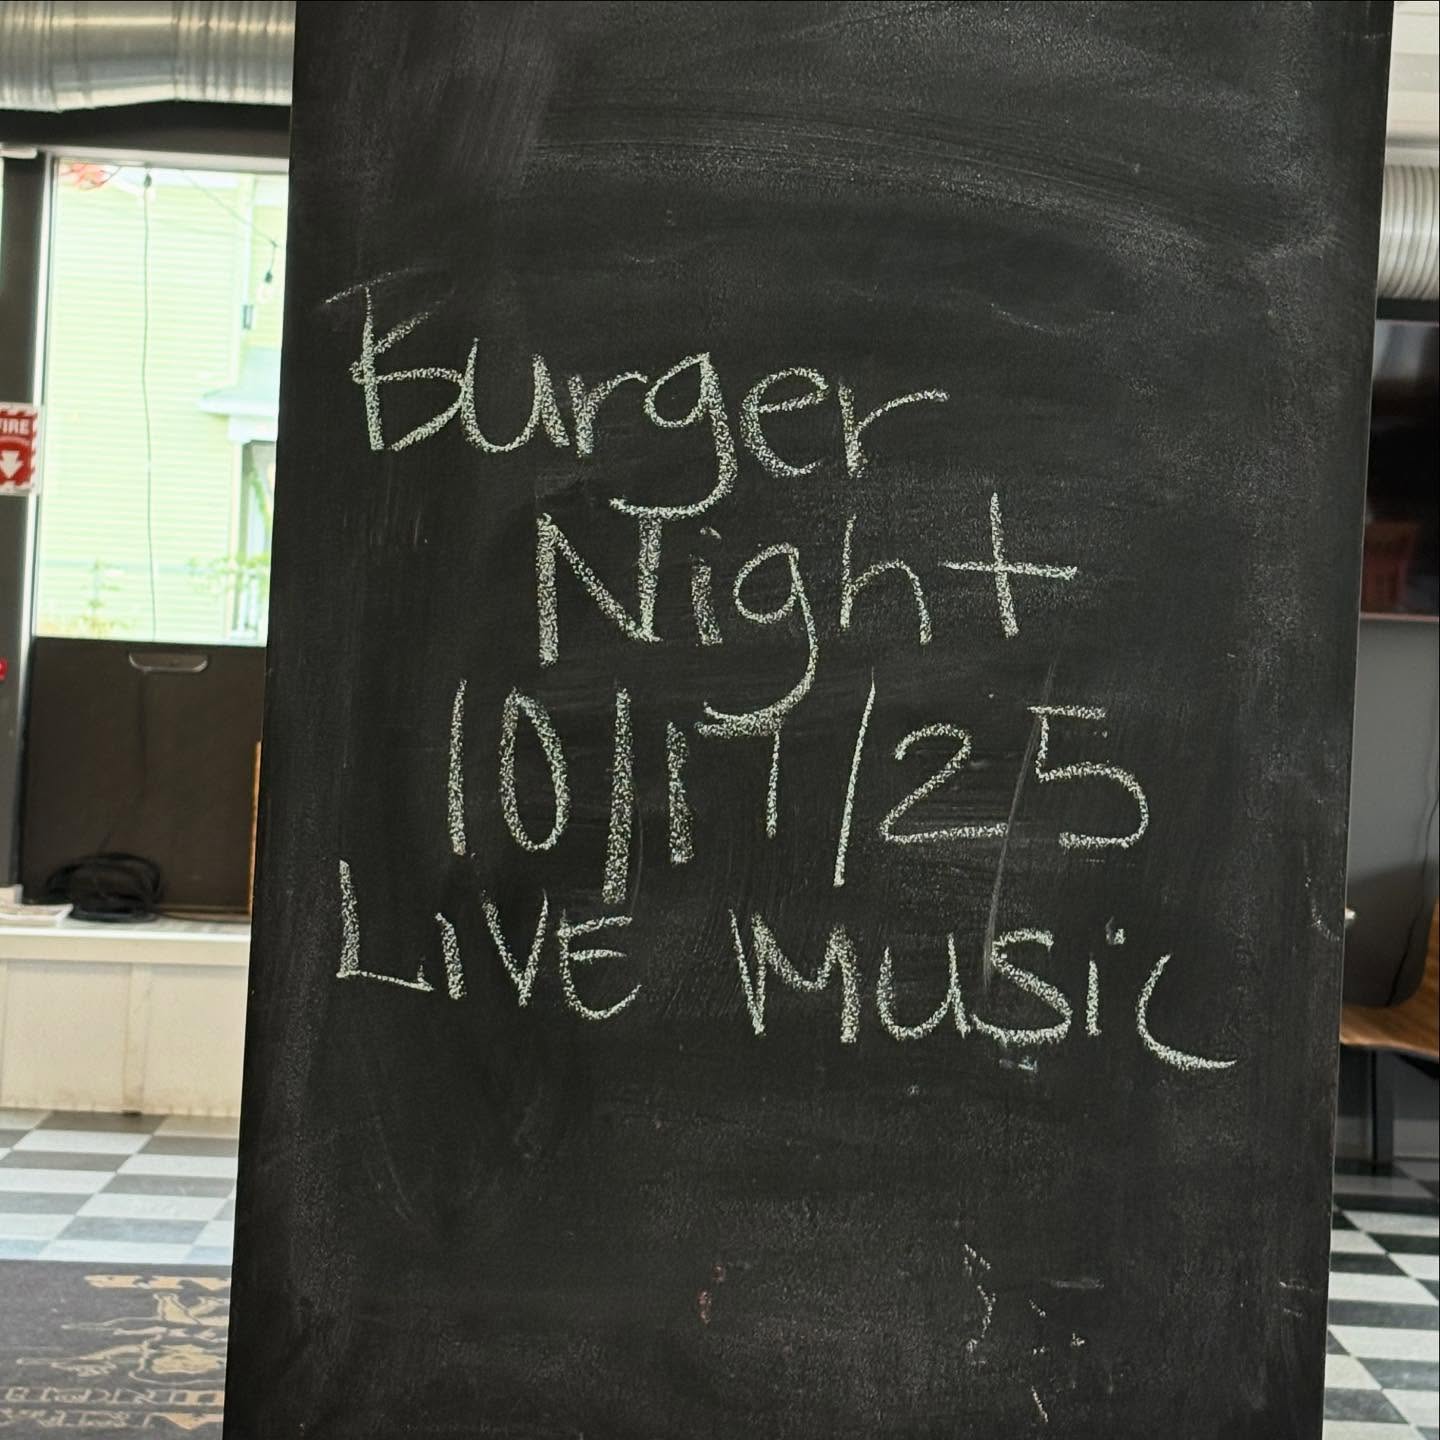 Burger
Night
10/17/25
LiVE Music
FIRE